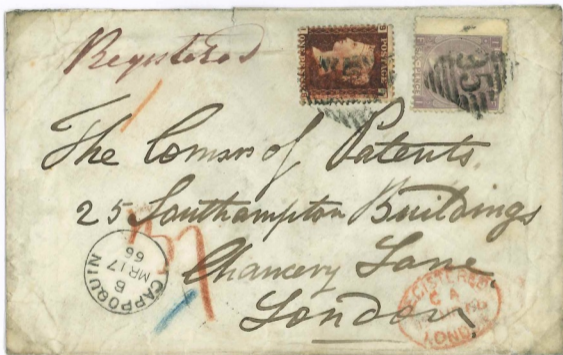 Registered
The Comsrs of Patents.
25 Southampton Buildings
Chancery Lane.
London
CAPPOQUIN
5
MR 17
66
REGISTERED
LONDON
95